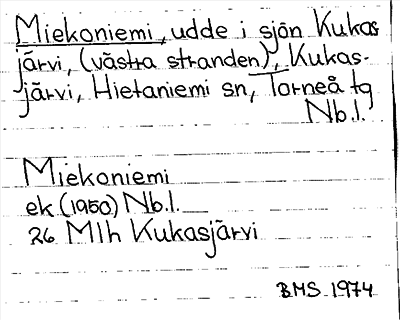 Miekoniemi, udde i sjön Kukas
järvi, (västra stranden), Kukas-
järvi, Hietaniemi sn, Torneå tg
Nb.l.
Miekoniemi
ek (1950) Nb.l.
26 Mlh Kukasjärvi
BMS 1974